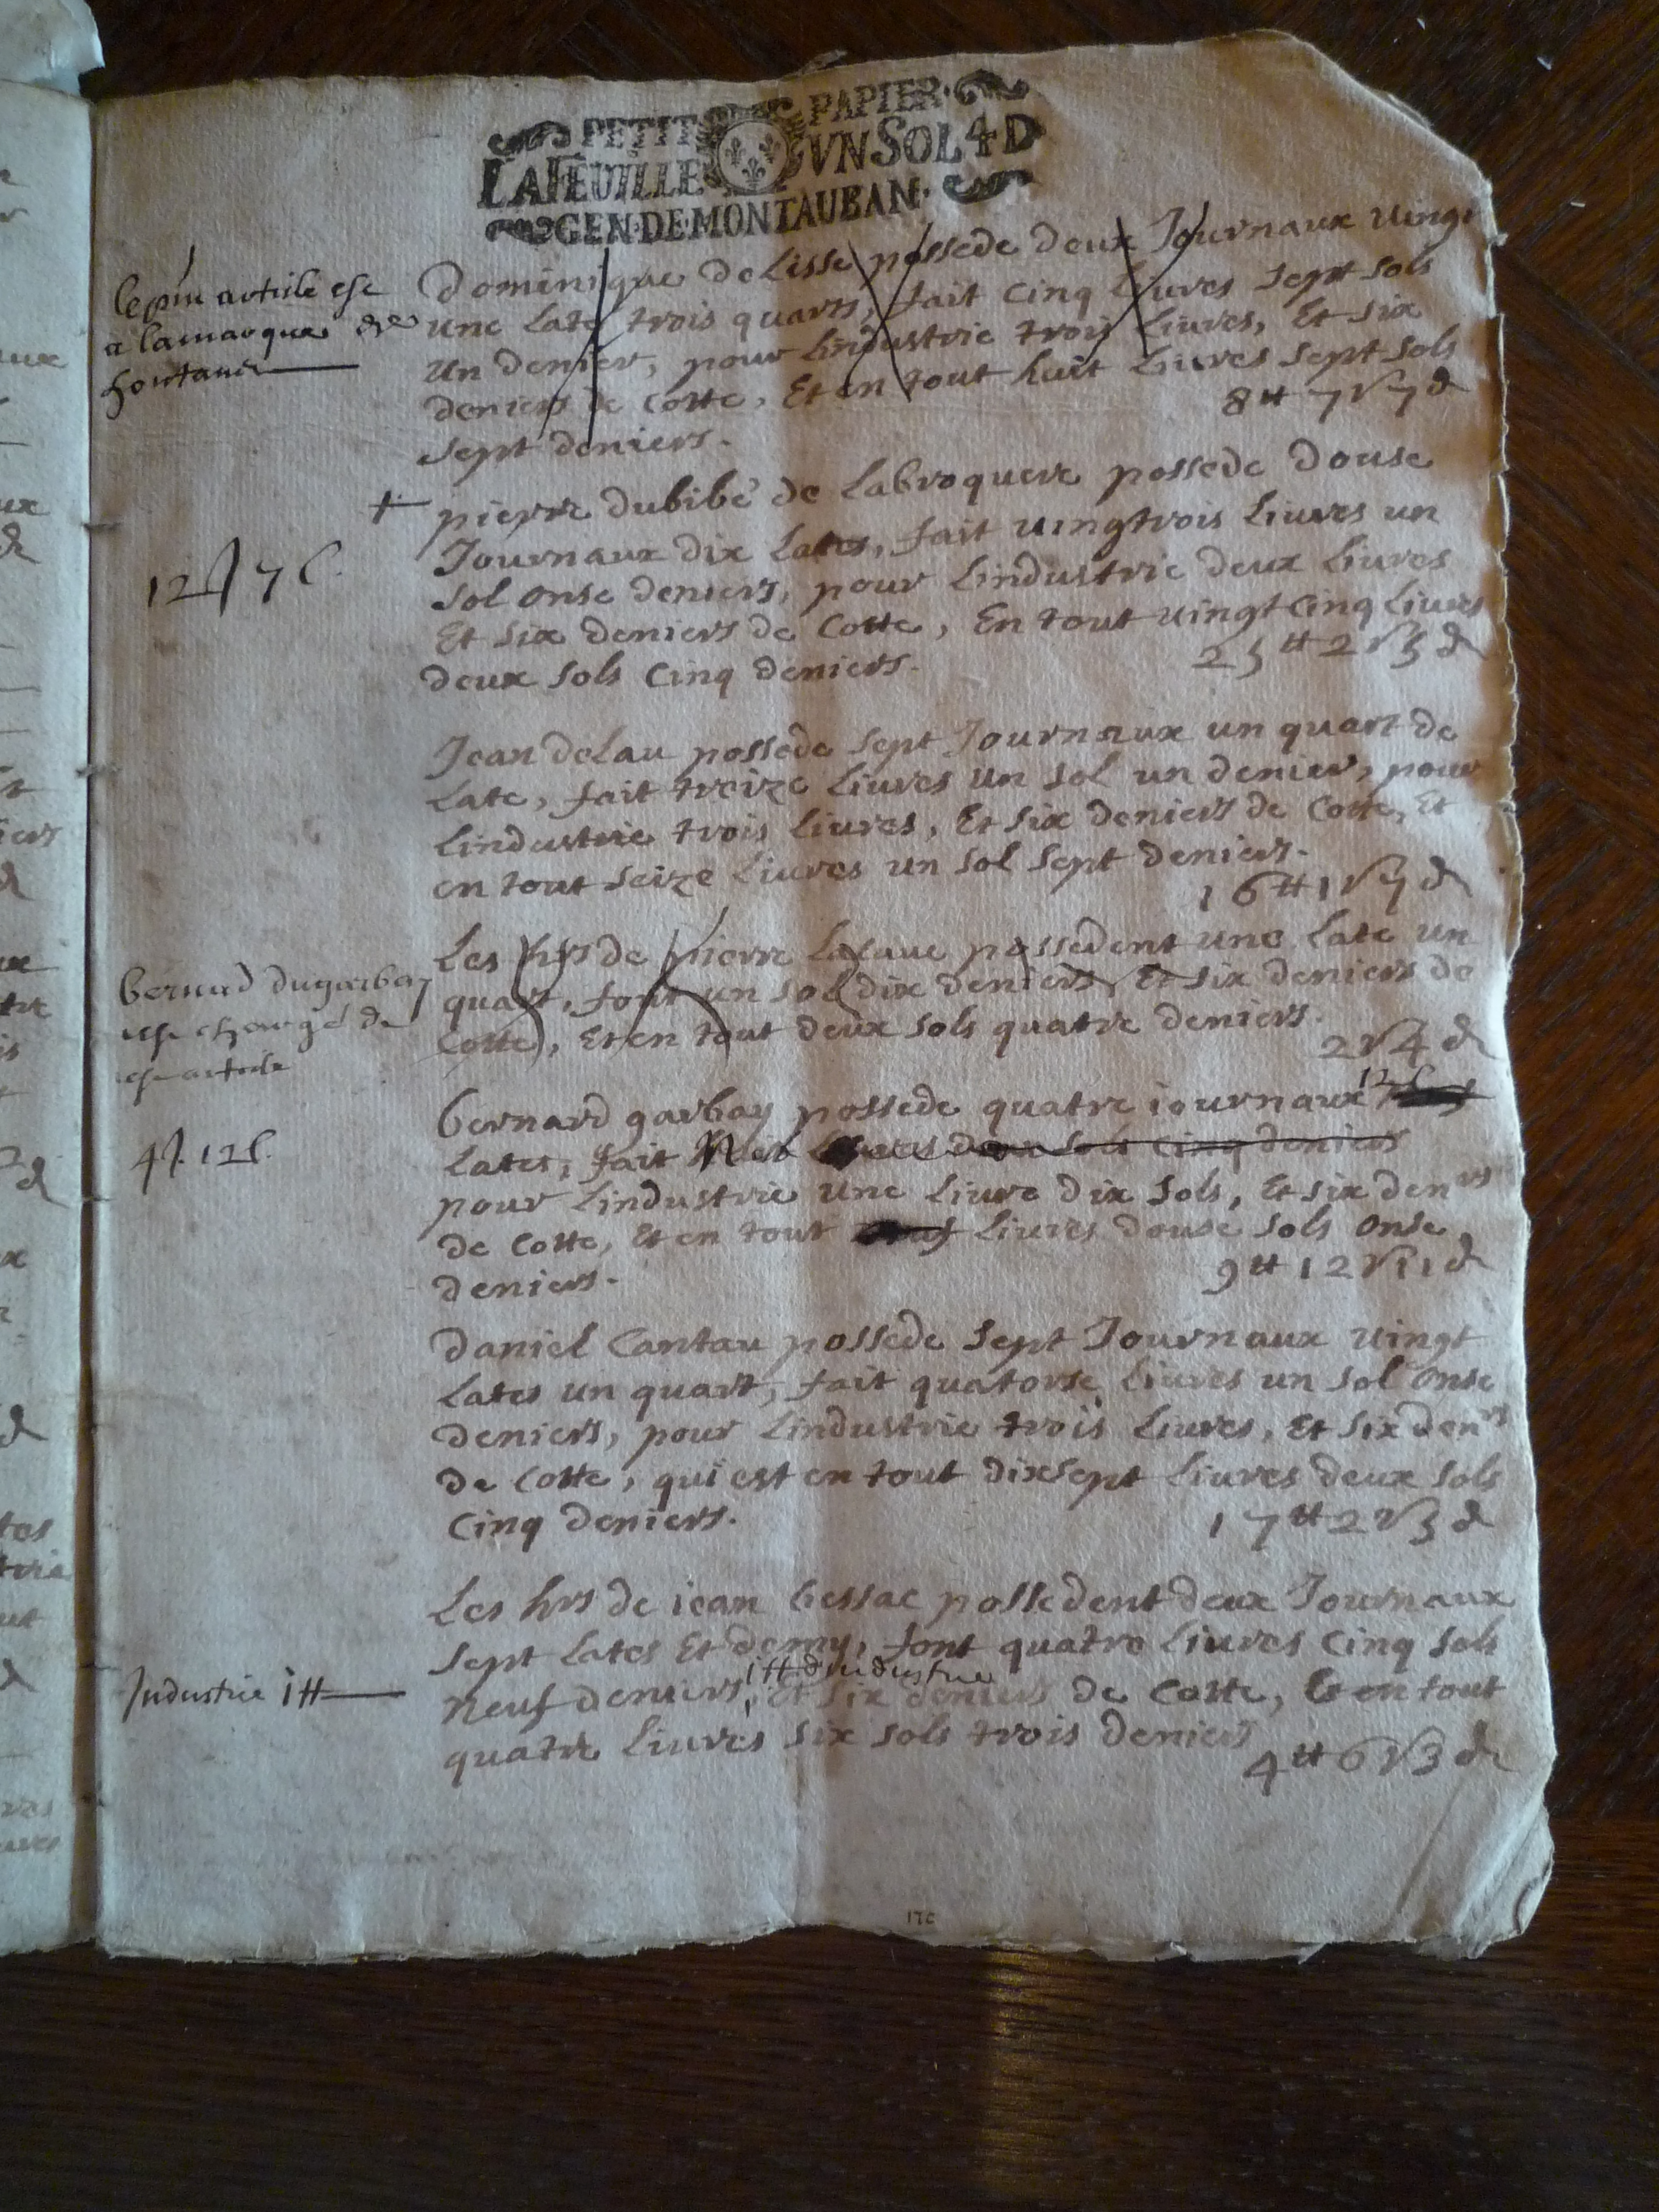 PETIT PAPIER
LA FEUILLE VN SOL 4 D
GEN·DE·MONTAUBAN·
Dominique Delisse possede deux Journaux vingt
une Late trois quarts, fait Cinq Livres sept sols
un denier, pour Lindustrie trois Livres, Et six
deniers de Cotte, Et en tout huit Livres sept sols
sept deniers.
8 ₶ 7 s 7 d
le pnt article est
a lamarque de
+ pierre dubibé de Labroquere possede douse
Journaux dix Lates, fait vingtrois Livres un
sol onse deniers, pour Lindustrie deux Livres
Et six deniers de Cotte, En tout vingt Cinq Livres
deux sols Cinq deniers.
25 ₶ 2 s 5 d
12 J 7 l.
Jean delau possede sept Journaux un quart de
Late, fait treize Livres un sol un denier, pour
Lindustrie trois Livres, Et six deniers de Cotte, Et
en tout seize Livres un sol sept deniers.
16 ₶ 1 s 7 d
Les hrs de pierre Lacaue possedent une Late un
quart, font un sol dix deniers, Et six deniers de
Cotte, Et en tout deux sols quatre deniers.
2 s 4 d
bernad dugarbay
est chargé de
cest article
bernard garbay possede quatre journaux 12 l
Lates, fait Livres deux sols Cinq deniers
pour Lindustrie une Livre dix sols, Et six denrs
de Cotte, Et en tout Livres douse sols onse
deniers.
9 ₶ 12 s 11 d
4 J. 12 l.
Daniel Cantau possede sept Journaux vingt
Lates un quart, fait quatorse Livres un sol onse
deniers, pour Lindustrie trois Livres, Et six denrs
de Cotte, qui est en tout dixsept Livres deux sols
Cinq deniers.
17 ₶ 2 s 5 d
Les hrs de jean bessac possedent deux Journaux
sept Lates Et demy, font quatre Livres Cinq sols
1 ₶ dindustrie
neuf deniers, Et six deniers de Cotte, Et en tout
quatre Livres six sols trois deniers
4 ₶ 6 s 3 d
Industrie 1 ₶